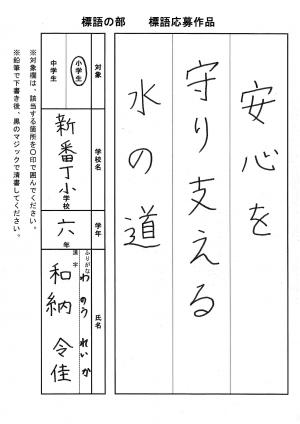 標語の部　標語応募作品
安心を
守り支える
水の道
対象
小学生
中学生
学校名
新番丁小学校
学年
六年
氏名
ふりがな
わのう れいか
漢字
和納 令佳
※対象欄は、該当する箇所を〇印で囲んでください。
※鉛筆で下書き後、黒のマジックで清書してください。